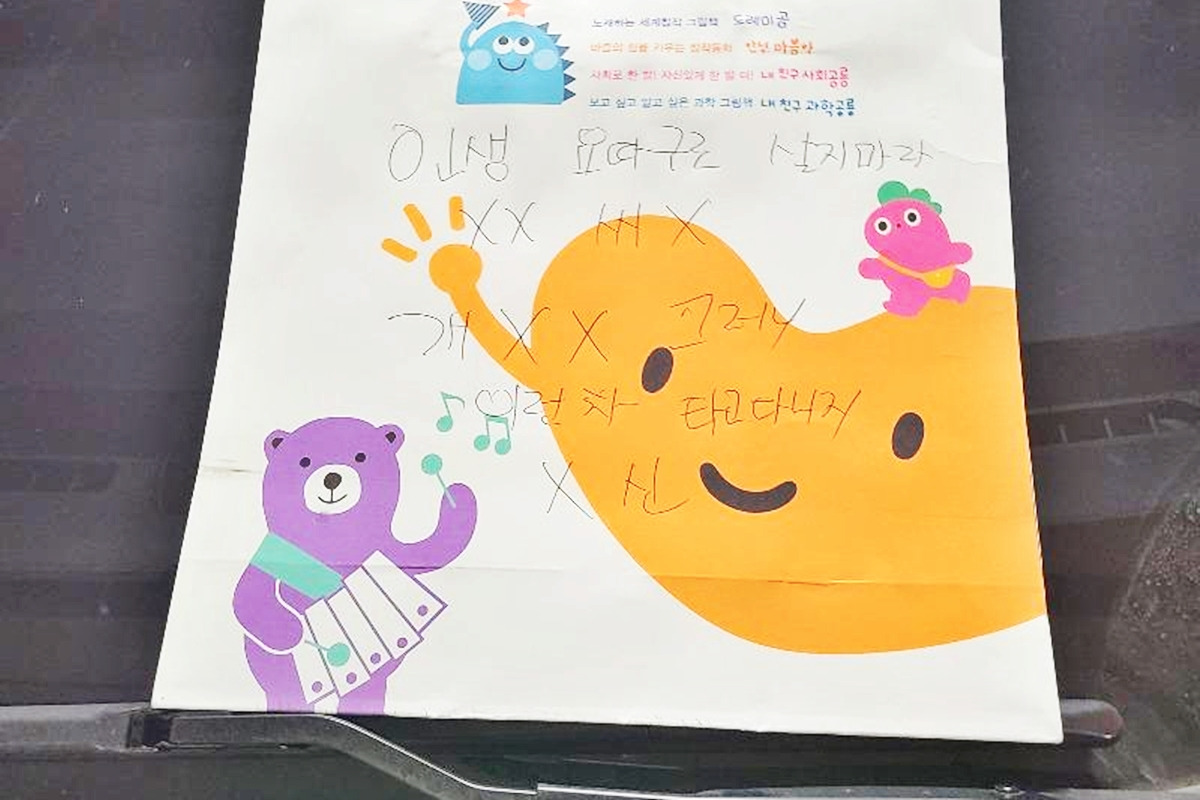 노래하는 세계창작 그림책 도레미곰
마음의 힘을 키우는 창작동화 안녕 마음아
사회로 한 발! 자신있게 한 발 더! 내 친구 사회공룡
보고 싶고 알고 싶은 과학 그림책 내 친구 과학공룡
인생 요따구로 살지마라
XX 새X
개XX 그러니
이런 차 타고다니지
X신